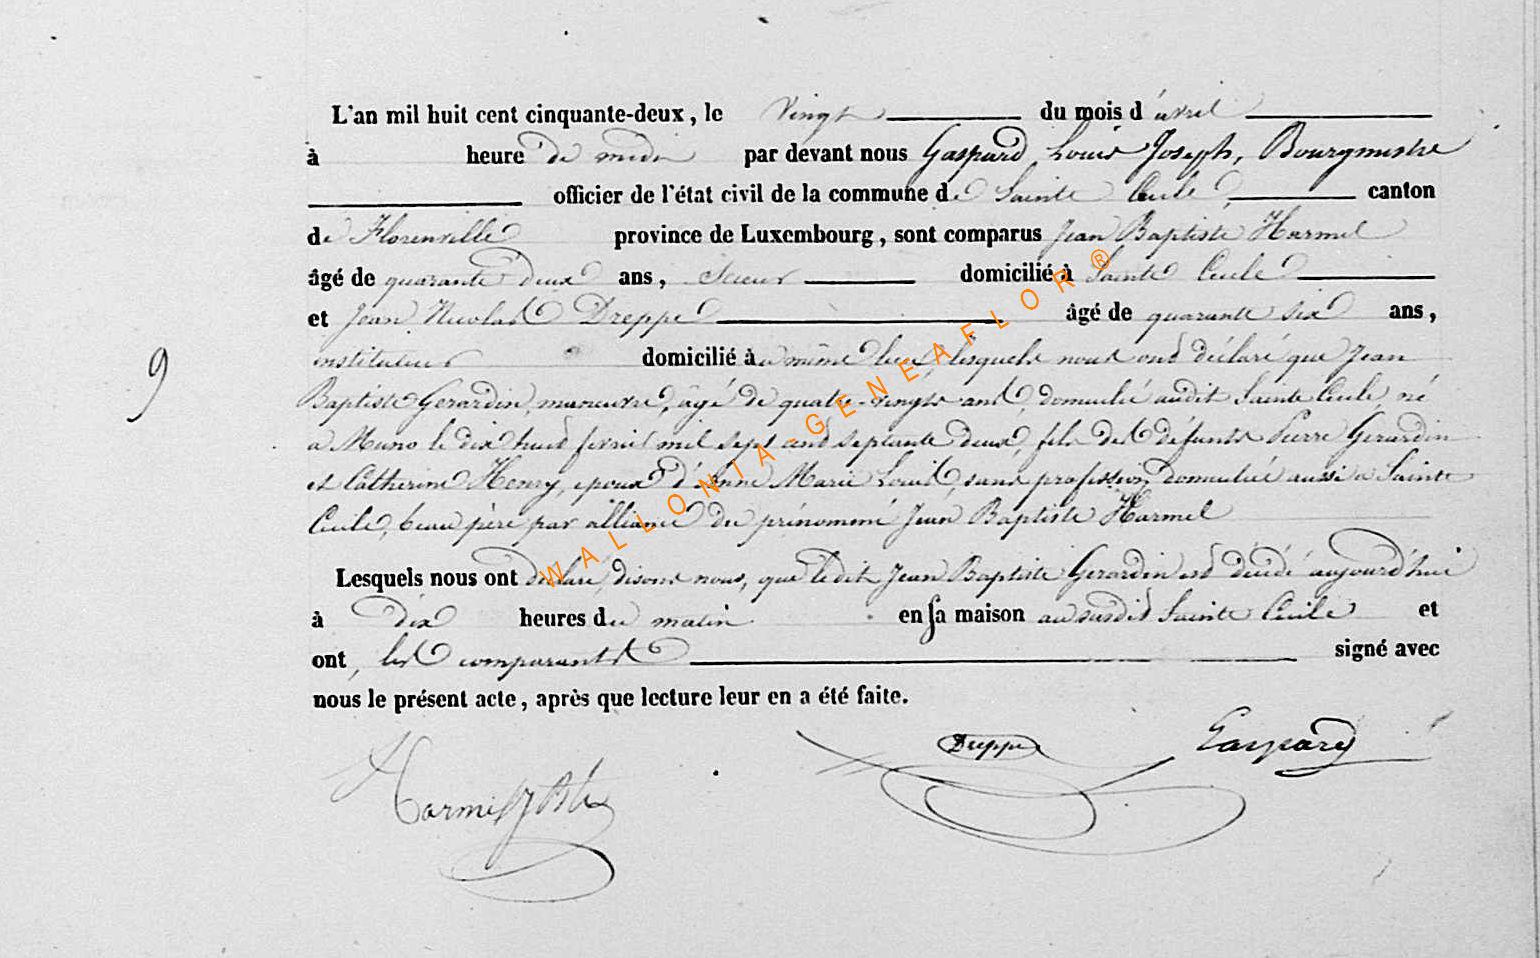 L'an mil huit cent cinquante-deux, le vingt du mois d'avril
à heure de midi par devant nous Gaspard, Louis Joseph, Bourgmestre
officier de l'état civil de la commune de Sainte Cecile, canton
de Florenville province de Luxembourg, sont comparus Jean Baptiste Harmel
âgé de quarante deux ans, Scieur domicilié à Sainte Cecile
et Jean Nicolas Dreppe âgé de quarante six ans,
instituteur domicilié au même lieu, lesquels nous ont déclaré que Jean
Baptiste Gerardin, maneuvre, âgé de quatre-vingts ans, domicilié audit Sainte Cecile né
a Muno le dix huit fevrier mil sept cent septante deux, fils des défunts Pierre Gerardin
et Catherine Henry, epoux d'Anne Marie Louis, sans profession, domiciliée aussi a Sainte
Cecile, beau père par alliance du prénommé Jean Baptiste Harmel
9
Lesquels nous ont déclaré, disons nous, que ledit Jean Baptiste Gerardin est décédé aujourd'hui
à dix heures du matin en sa maison au susdit Sainte Cecile et
ont, les comparants signé avec
nous le présent acte, après que lecture leur en a été faite.
Dreppe Gaspard
Harmel J Bte
WALLONIA-GENEAFLOR ®